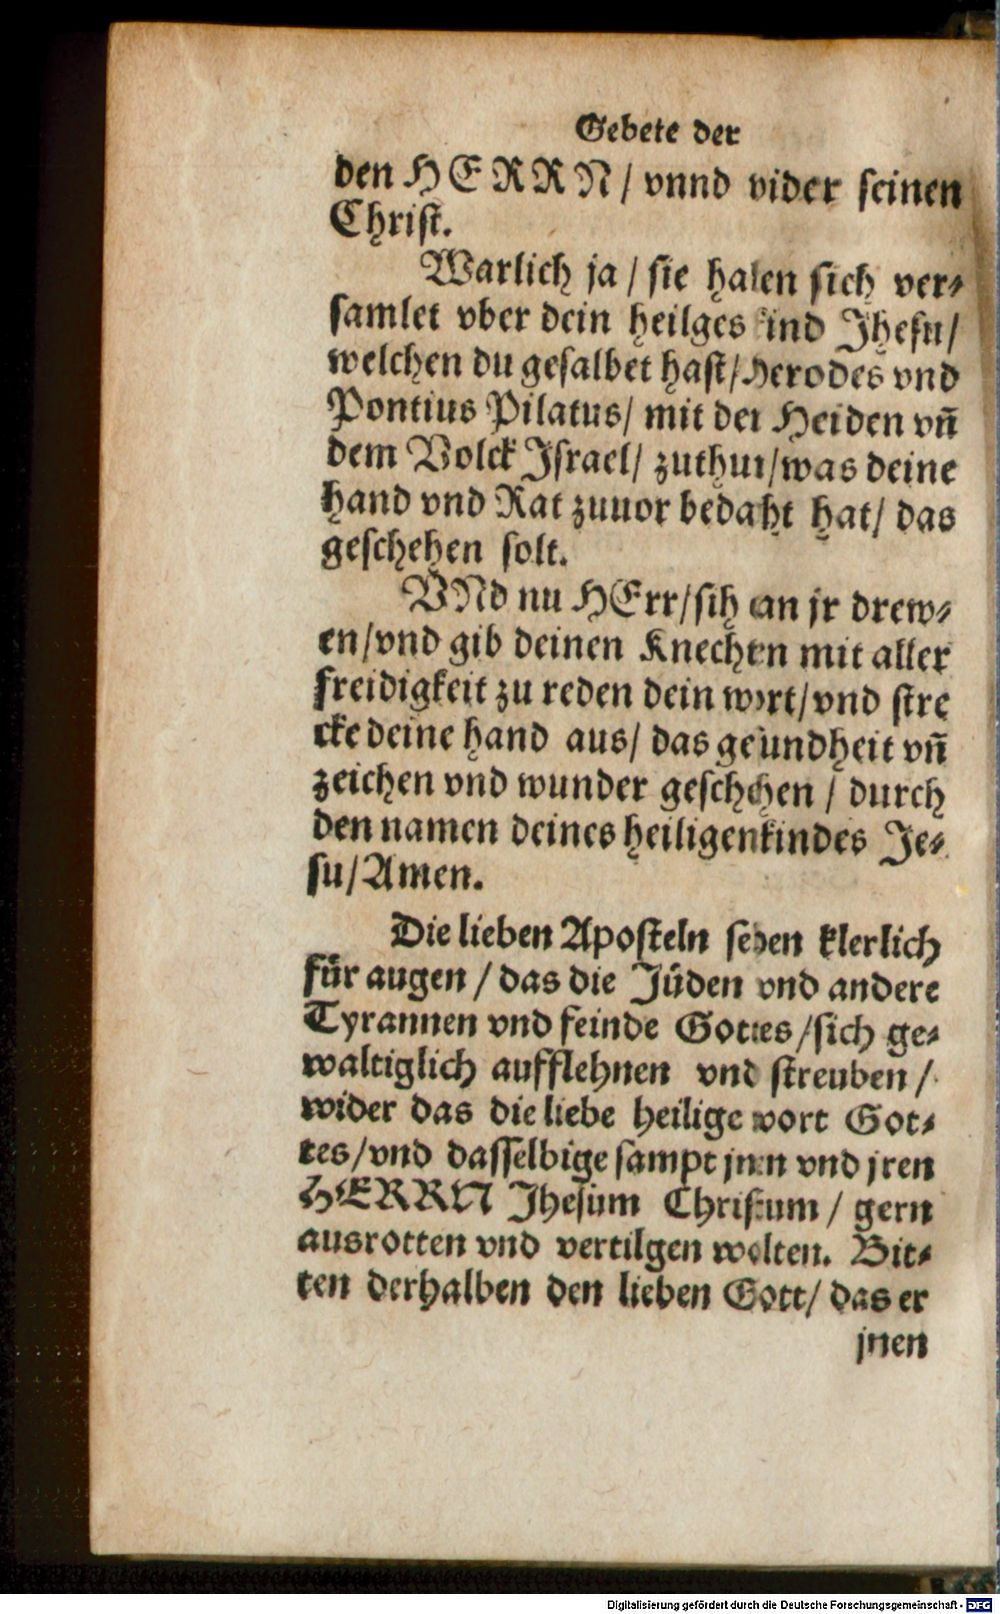 Gebete der
den HERRN / vnnd wider seinen
Christ.
Warlich ja / sie haben sich ver⸗
samlet vber dein heilges kind Jhesu /
welchen du gesalbet hast / Herodes vnd
Pontius Pilatus / mit den Heiden vn̄
dem Volck Jsrael / zuthun / was deine
hand vnd Rat zuuor bedacht hat / das
geschehen solt.
VNd nu HErr / sih an jr drew⸗
en / vnd gib deinen Knechten mit aller
freidigkeit zu reden dein wort / vnd stre
cke deine hand aus / das gesundheit vn̄
zeichen vnd wunder geschehen / durch
den namen deines heiligen kindes Je⸗
su / Amen.
Die lieben Aposteln sehen klerlich
für augen / das die Jüden vnd andere
Tyrannen vnd feinde Gottes / sich ge⸗
waltiglich aufflehnen vnd streuben /
wider das die liebe heilige wort Got⸗
tes / vnd dasselbige sampt jnen vnd jren
HERRN Jhesum Christum / gern
ausrotten vnd vertilgen wolten. Bit⸗
ten derhalben den lieben Gott / das er
jnen
Digitalisierung gefördert durch die Deutsche Forschungsgemeinschaft - DFG